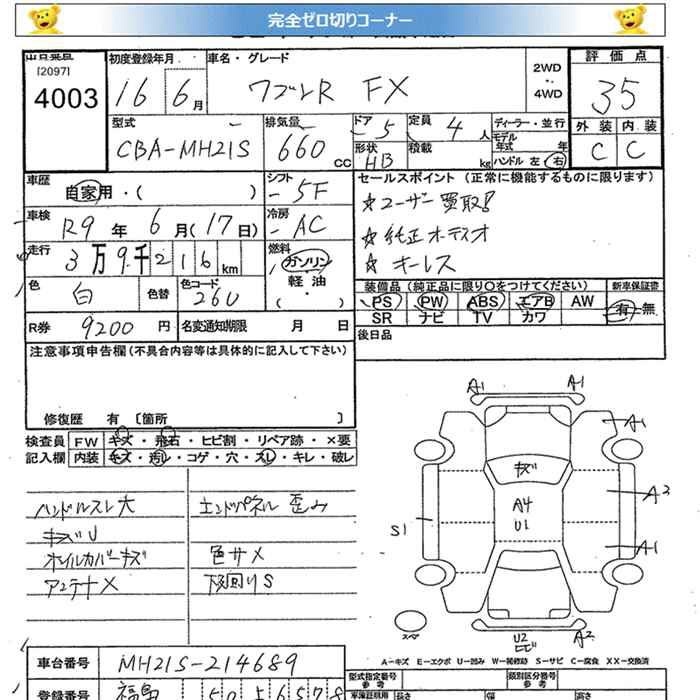 完全ゼロ切りコーナー
出品票且
[2097]
4003
初度登録年月
16 6月
車名・グレード
ワゴンR FX
2WD
・・
4WD
評価点
35
外装 内装
C C
型式
CBA-MH21S
排気量
660 CC
ドア 5
定員 4 人
形状 HB
積載 kg
ディーラー・並行
モデル年式 年
ハンドル 左 右
車歴
自家用・( )
シフト
5F
車検
R9 年 6 月(17日)
冷房
AC
走行
3万9千216km
燃料
ガソリン
軽油
( ・ )
色
白
色替
色コード
26U
R券 9200 円
名変通知期限 月 日
セールスポイント (正常に機能するものに限ります)
☆ユーザー買取!
☆純正オーディオ
☆キーレス
装備品 (純正品に限り〇をつけてください)
新車保証書
PS PW ABS エアB AW
SR ナビ TV カワ
有・無
後日品
注意事項申告欄 (不具合内容等は具体的に記入して下さい)
修復歴 有 〔箇所 〕
検査員 FW キズ・飛石・ヒビ割・リペア跡・×要
記入欄 内装 キズ・汚レ・コゲ・穴・スレ・キレ・破レ
ハンドルスレ大
キズU
ホイルカバーキズ
アンテナX
エンドパネル歪み
色サメ
下回りS
A1 A1
A1
キズ
A4
U1
A2
S1
A1
スペア
U2
ヒビ
A2
A-キズ E-エクボ U-凹み W-補修跡 S-サビ C-腐食 XX-交換済
車台番号 MH21S-214689
登録番号 福島 50
型式指定番号
参考
類別区分番号
参考
長さ 幅 高さ